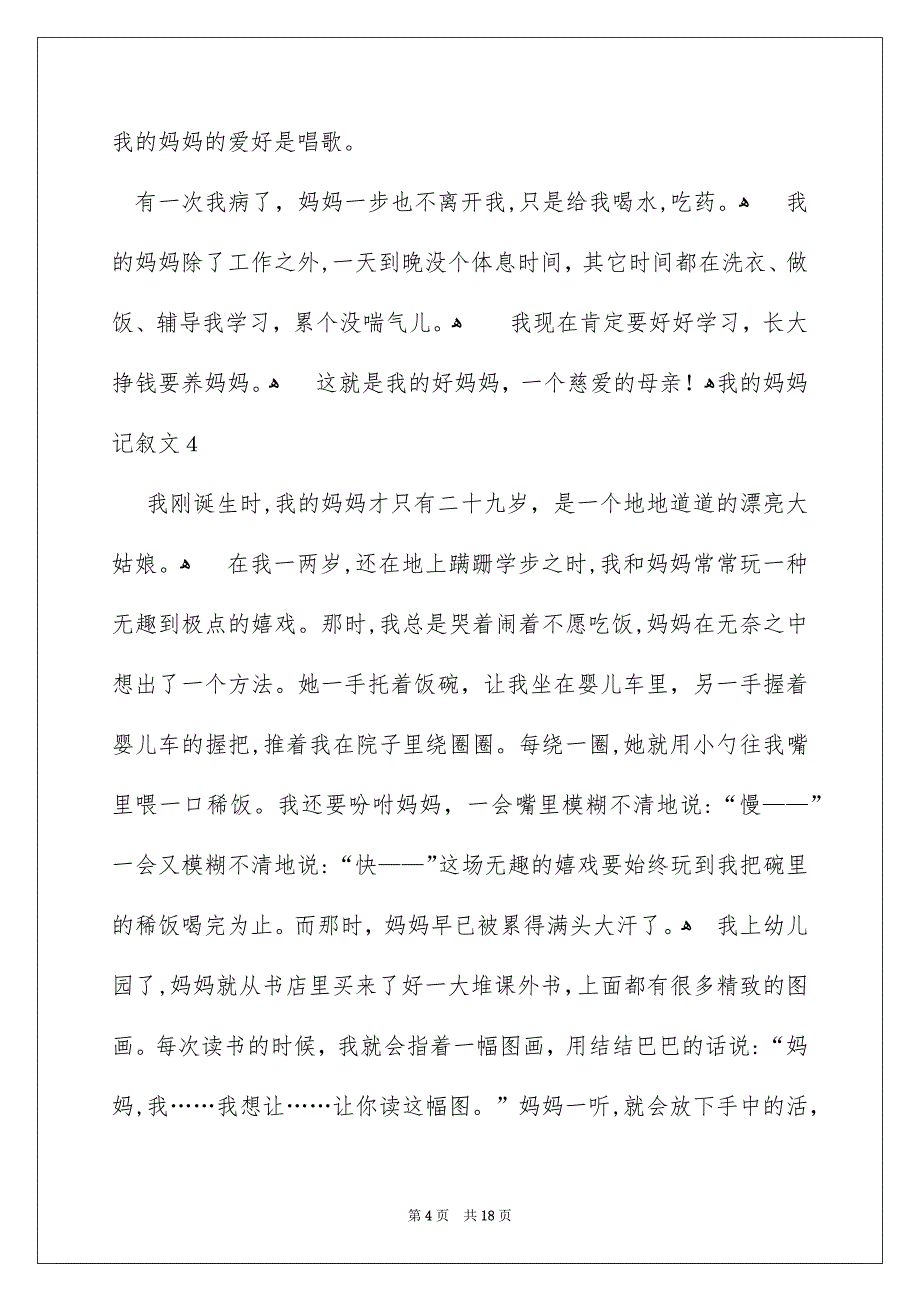 我的妈妈的爱好是唱歌。
有一次我病了，妈妈一步也不离开我,只是给我喝水,吃药。ﻫ 我
的妈妈除了工作之外,一天到晚没个体息时间，其它时间都在洗衣、做
饭、辅导我学习，累个没喘气儿。ﻫ 我现在肯定要好好学习，长大
挣钱要养妈妈。ﻫ 这就是我的好妈妈，一个慈爱的母亲！ﻫ我的妈妈
记叙文 4
我刚诞生时,我的妈妈才只有二十九岁，是一个地地道道的漂亮大
姑娘。ﻫ 在我一两岁,还在地上蹒跚学步之时,我和妈妈常常玩一种
无趣到极点的嬉戏。那时,我总是哭着闹着不愿吃饭,妈妈在无奈之中
想出了一个方法。她一手托着饭碗，让我坐在婴儿车里，另一手握着
婴儿车的握把,推着我在院子里绕圈圈。每绕一圈,她就用小勺往我嘴
里喂一口稀饭。我还要吩咐妈妈，一会嘴里模糊不清地说:“慢——”
一会又模糊不清地说:“快——”这场无趣的嬉戏要始终玩到我把碗里
的稀饭喝完为止。而那时，妈妈早已被累得满头大汗了。ﻫ 我上幼儿
园了,妈妈就从书店里买来了好一大堆课外书，上面都有很多精致的图
画。每次读书的时候，我就会指着一幅图画，用结结巴巴的话说:“妈
妈,我……我想让……让你读这幅图。”妈妈一听,就会放下手中的活，
第 4 页 共 18 页